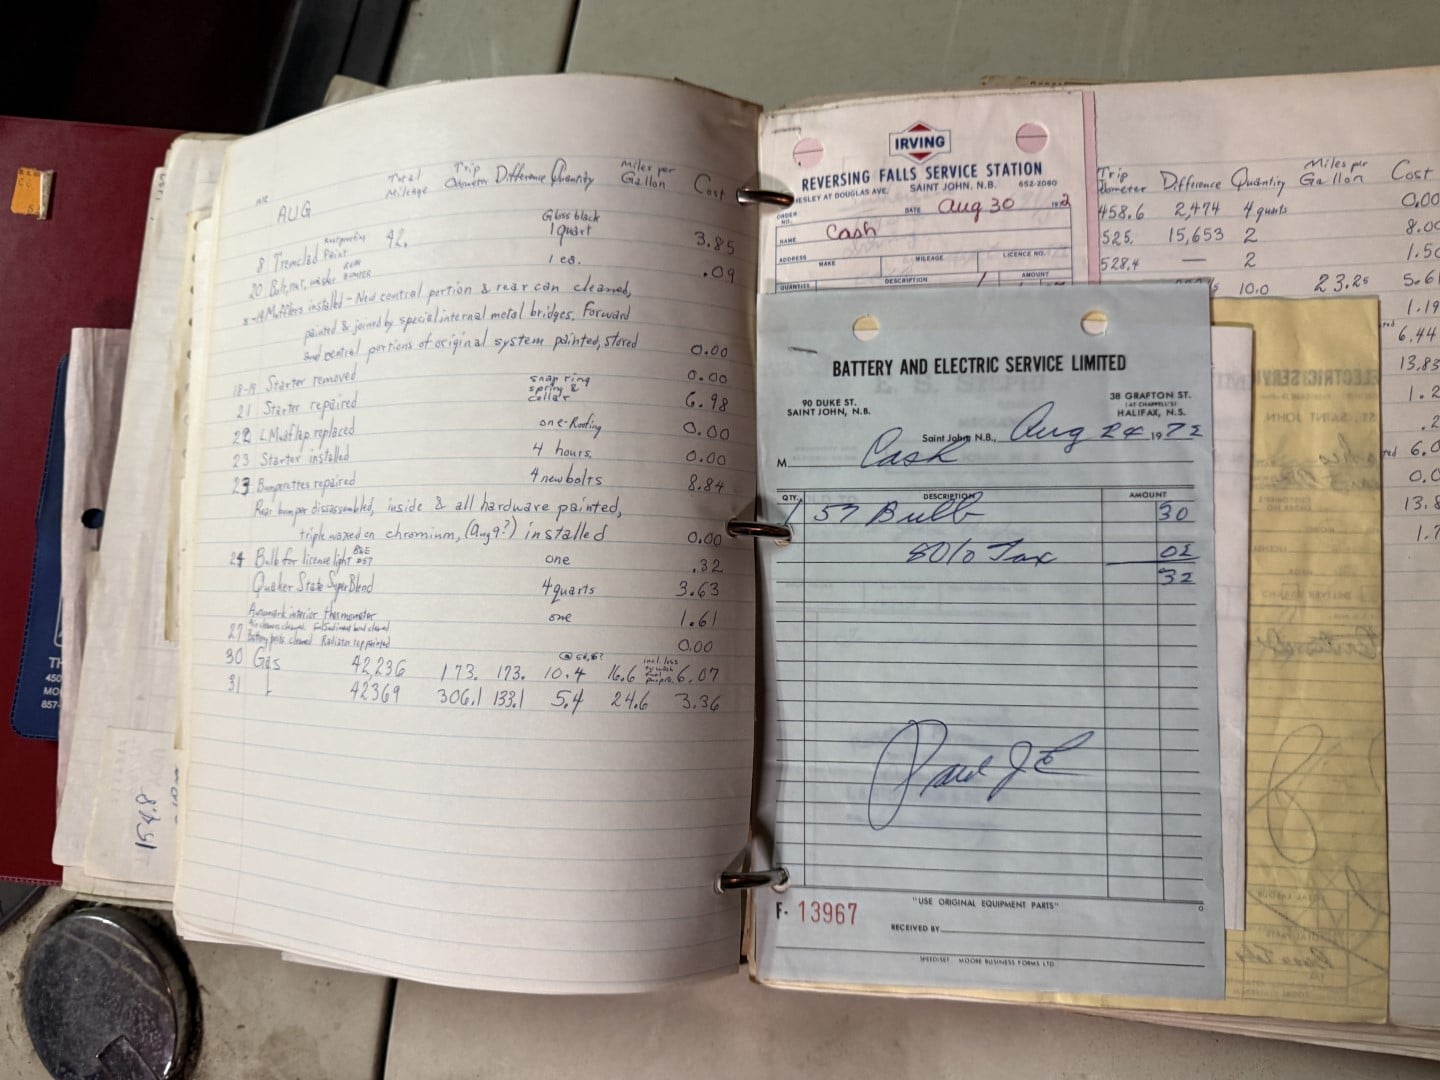 AUG
Total Mileage Trip Odometer Difference Quantity Miles per Gallon Cost
8 Tremclad Rustproofing Paint 42, Gloss black 1 quart 3.85
20 Bolt, nut, washer REAR BUMPER 1 ea. .09
Mufflers installed - New central portion & rear can cleaned,
painted & joined by special internal metal bridges. Forward
and central portions of original system painted, stored 0.00
18-19 Starter removed 0.00
21 Starter repaired snap ring spring & collar 6.98
22 L Mudflap replaced one-Roofing 0.00
23 Starter installed 4 hours. 0.00
23 Bumperettes repaired 4 new bolts 8.84
Rear bumper dissassembled, inside & all hardware painted,
triple waxed on chromium, (Aug 9?) installed 0.00
24 Bulb for license light B&E #57 one .32
Quaker State Super Blend 4 quarts 3.63
Automark interior thermometer one 1.61
27 Battery posts cleaned Radiator top painted 0.00
30 Gas 42,236 173. 173. 10.4 16.6 incl. loss 6.07
31 42369 306.1 133.1 5.4 24.6 3.36
IRVING
REVERSING FALLS SERVICE STATION
CHESLEY AT DOUGLAS AVE. SAINT JOHN, N.B. 652-2080
ORDER NO. DATE Aug 30 1972
NAME Cash
ADDRESS
MAKE MILEAGE LICENCE NO.
QUANTITY DESCRIPTION AMOUNT
BATTERY AND ELECTRIC SERVICE LIMITED
90 DUKE ST.
SAINT JOHN, N.B.
38 GRAFTON ST.
(AT CHAPPELL'S)
HALIFAX, N.S.
Saint John, N.B., Aug 24 1972
M Cash
QTY. DESCRIPTION AMOUNT
1 57 Bulb 30
8% Tax 02
32
Paul J
"USE ORIGINAL EQUIPMENT PARTS"
F- 13967
RECEIVED BY
SPEEDISET MOORE BUSINESS FORMS LTD.
Trip Odometer Difference Quantity Miles per Gallon Cost
458.6 2,474 4 quarts 0.00
525. 15,653 2 8.00
528.4 — 2 1.50
10.0 23.25 5.61
1.19
6.44
13.83
1.2
.2
6.0
0.0
13.8
1.7
TH
450
MO
857-